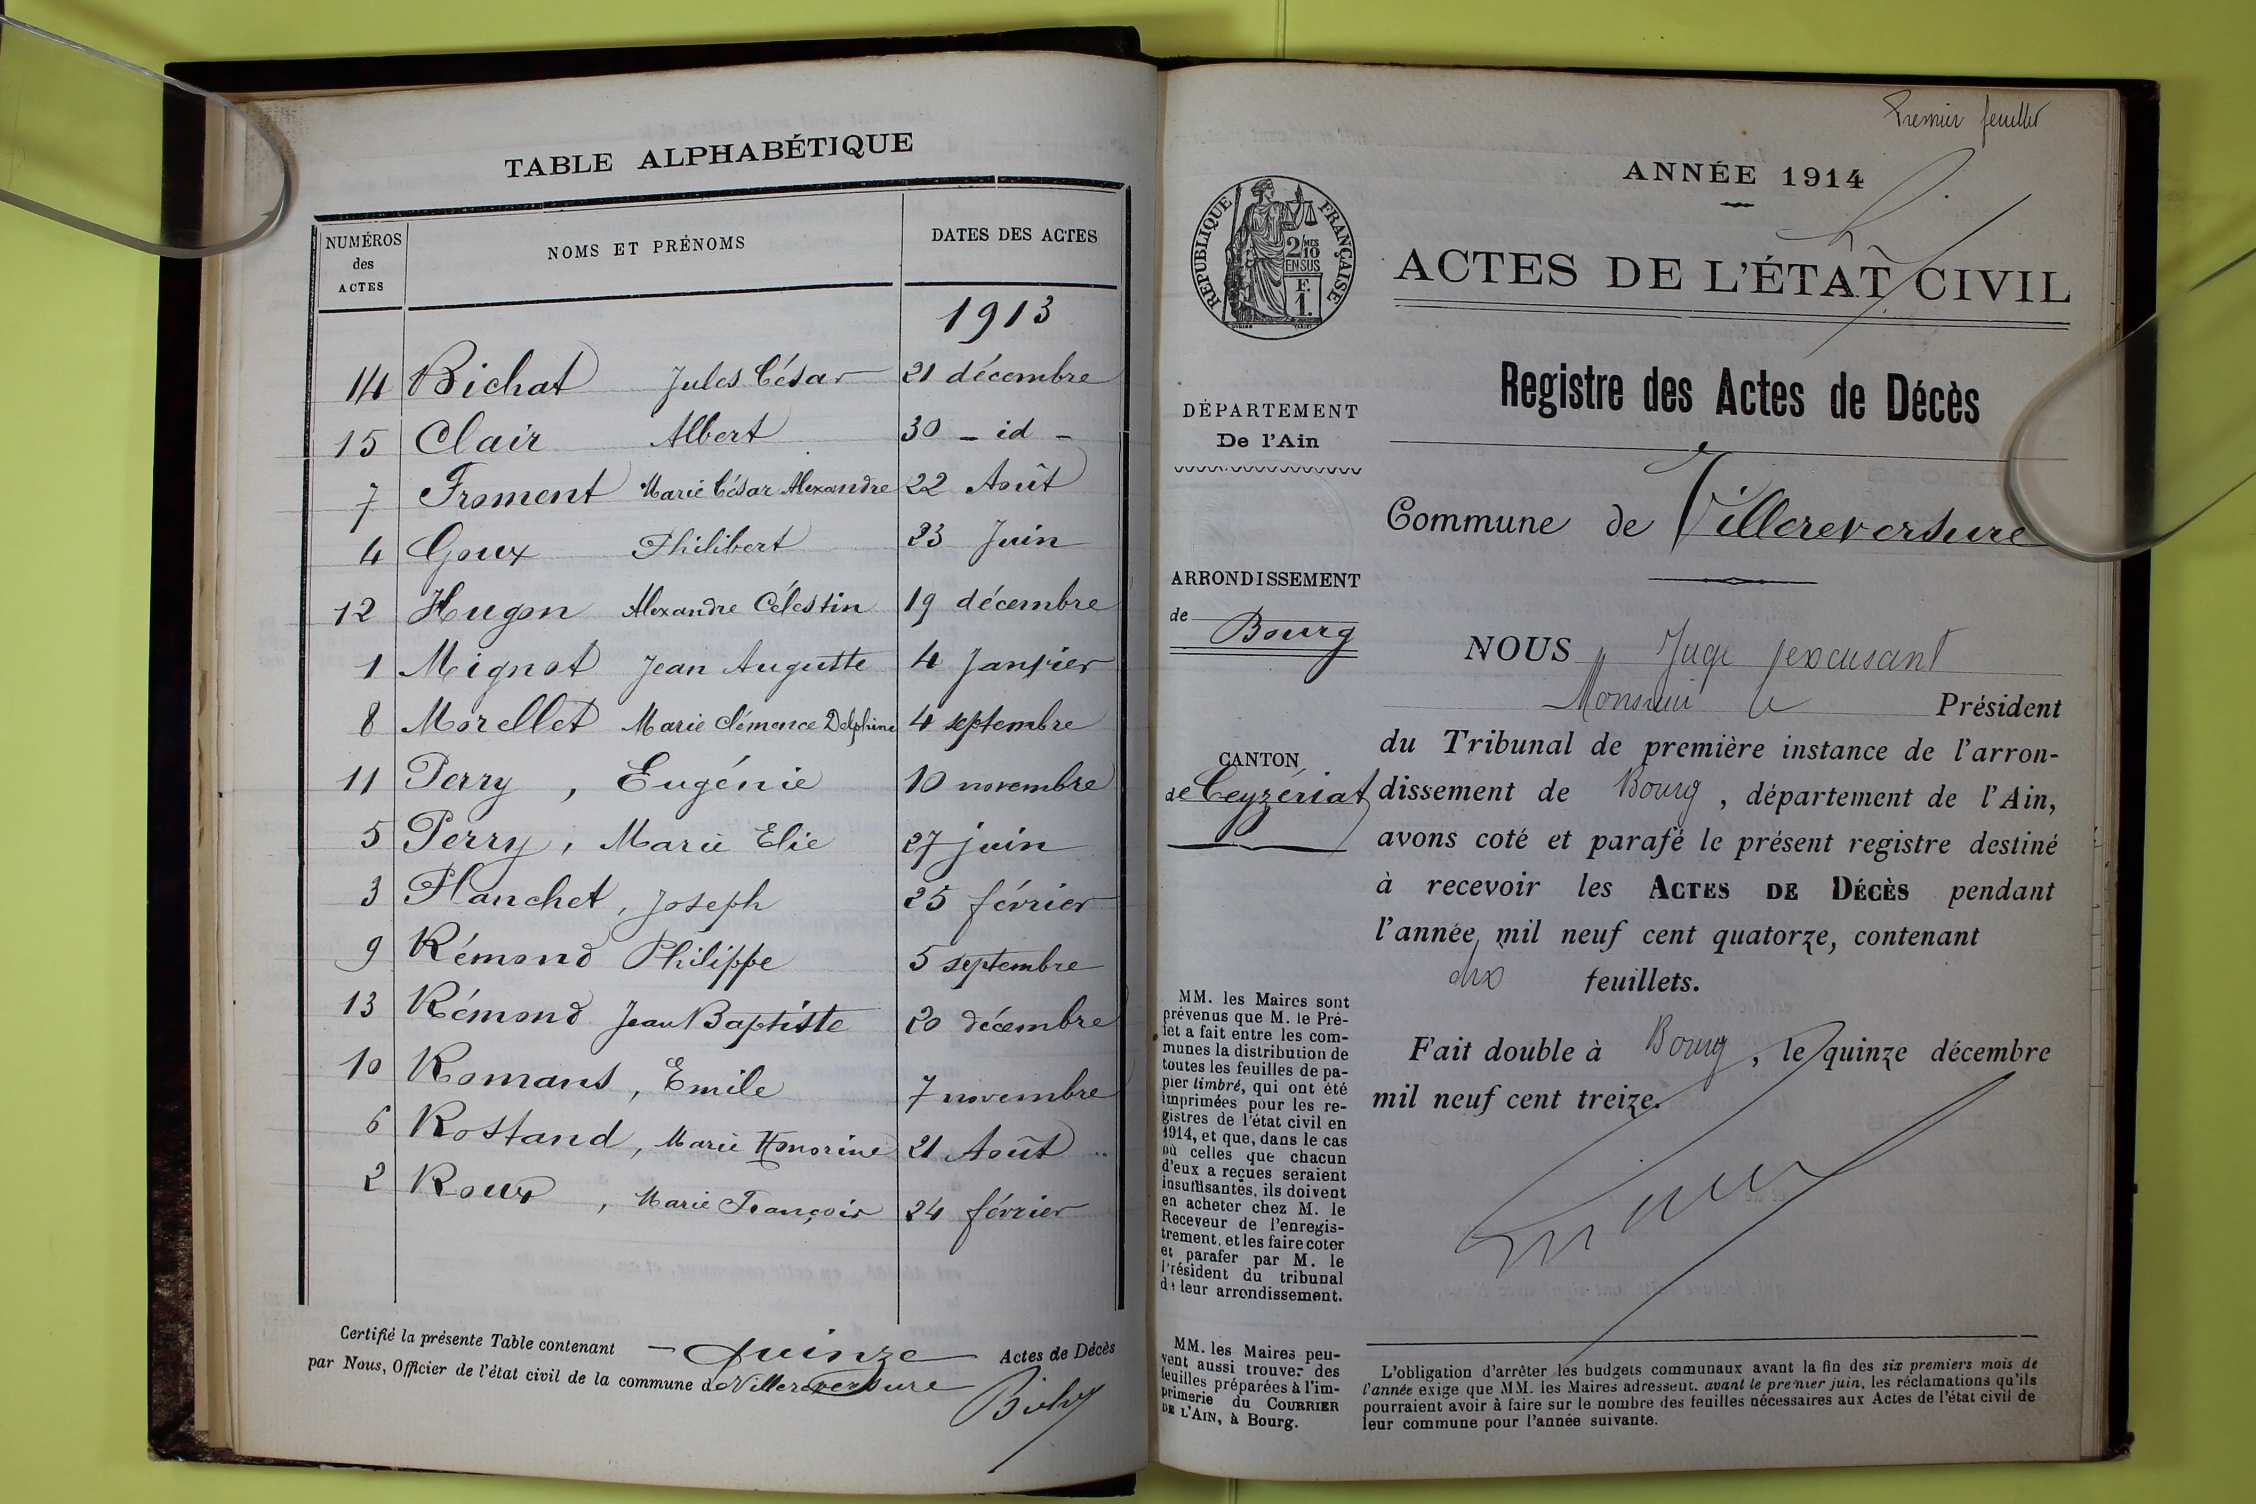 TABLE ALPHABÉTIQUE
NUMÉROS
des
ACTES
NOMS ET PRÉNOMS
DATES DES ACTES
1913
14 Bichat Jules César 21 décembre
15 Clair Albert 30 - id -
7 Froment Marie César Alexandre 22 Août
4 Goux Philibert 23 Juin
12 Hugon Alexandre Célestin 19 décembre
1 Mignot Jean Auguste 4 Janvier
8 Morellet Marie Clémence Delphine 4 septembre
11 Perry, Eugénie 10 novembre
5 Perry, Marie Elie 27 juin
3 Planchet, Joseph 25 février
9 Rémond Philippe 5 septembre
13 Rémond Jean Baptiste 20 décembre
10 Romans, Emile 7 novembre
6 Rostand, Marie Honorine 21 Août
2 Roux, Marie François 24 février
Certifié la présente Table contenant - quinze Actes de Décès
par Nous, Officier de l'état civil de la commune de Villereversure
Premier feuillet
ANNÉE 1914
RÉPUBLIQUE FRANÇAISE
2/MES
10
EN SUS
F.
1.
ACTES DE L'ÉTAT CIVIL
Registre des Actes de Décès
DÉPARTEMENT
De l'Ain
Commune de Villereversure
ARRONDISSEMENT
de Bourg
CANTON
de Ceyzériat
NOUS Juge
Monsieur le Président
du Tribunal de première instance de l'arron-
dissement de Bourg, département de l'Ain,
avons coté et parafé le présent registre destiné
à recevoir les ACTES DE DÉCÈS pendant
l'année mil neuf cent quatorze, contenant
dix feuillets.
Fait double à Bourg, le quinze décembre
mil neuf cent treize.
MM. les Maires sont
prévenus que M. le Pré-
fet a fait entre les com-
munes la distribution de
toutes les feuilles de pa-
pier timbré, qui ont été
imprimées pour les re-
gistres de l'état civil en
1914, et que, dans le cas
où celles que chacun
d'eux a reçues seraient
insuffisantes, ils doivent
en acheter chez M. le
Receveur de l'enregis-
trement, et les faire coter
et parafer par M. le
Président du tribunal
de leur arrondissement.
MM. les Maires peu-
vent aussi trouver des
feuilles préparées à l'im-
primerie du COURRIER
DE L'AIN, à Bourg.
L'obligation d'arrêter les budgets communaux avant la fin des six premiers mois de
l'année exige que MM. les Maires adressent, avant le premier juin, les réclamations qu'ils
pourraient avoir à faire sur le nombre des feuilles nécessaires aux Actes de l'état civil de
leur commune pour l'année suivante.